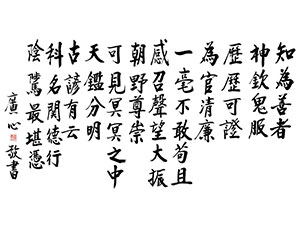 知為善者
神欽鬼服
歷歷可證
為官清廉
一毫不敢苟且
感召聲望大振
朝野尊崇
可見冥冥之中
天鑑分明
古諺有云
科名關德行
陰騭最堪憑
廣心敬書